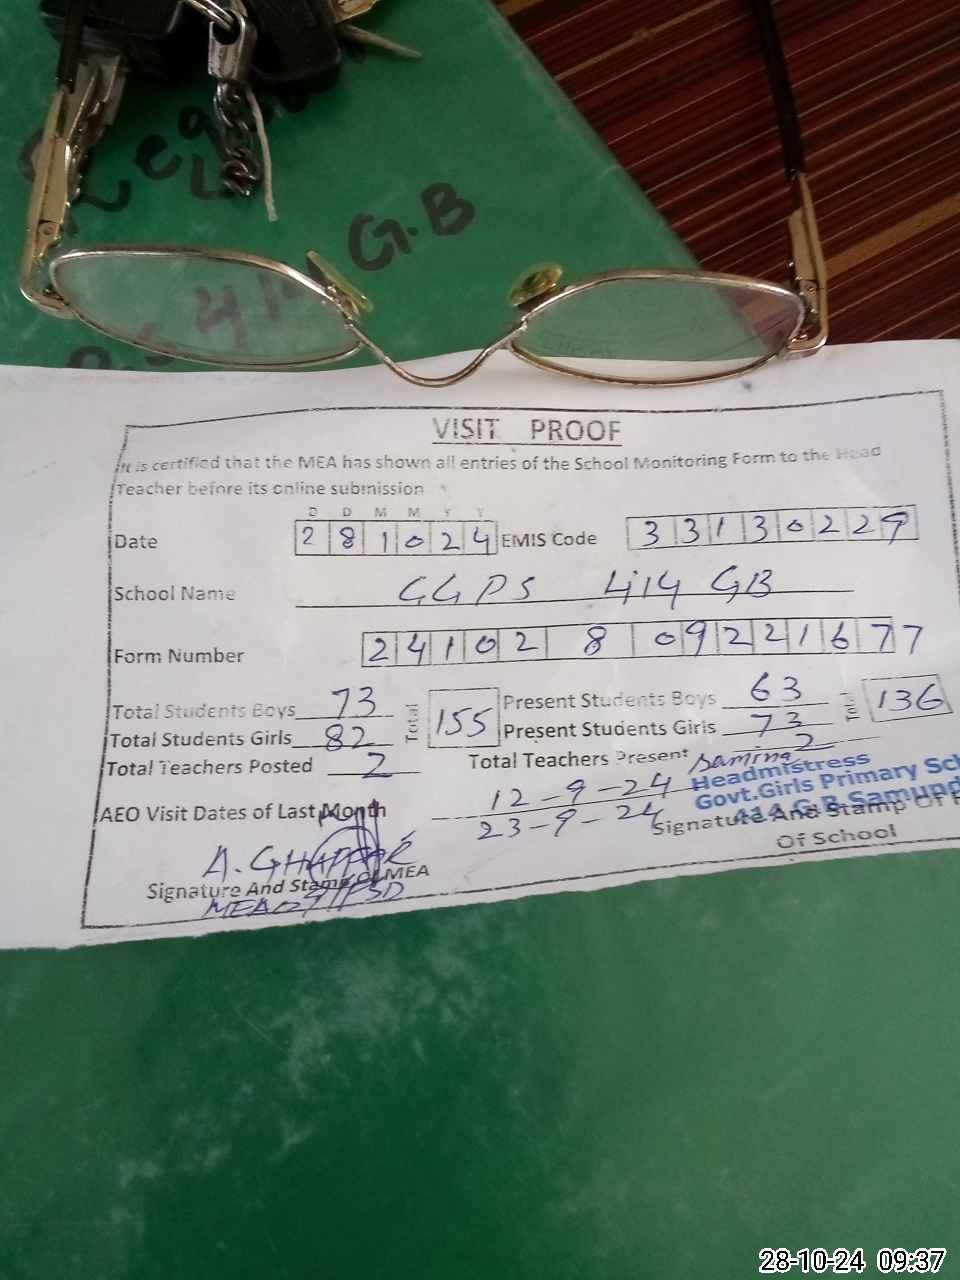 G.B
VISIT PROOF
It is certified that the MEA has shown all entries of the School Monitoring Form to the Head
Teacher before its online submission
D D M M Y Y
Date 2 8 1 0 2 4 EMIS Code 3 3 1 3 0 2 2 9
School Name GGPS 414 GB
Form Number 2 4 1 0 2 8 0 9 2 2 1 6 7 7
Total Students Boys 73 Total 155 Present Students Boys 63 Total 136
Total Students Girls 82 Present Students Girls 73
Total Teachers Posted 2 Total Teachers Present 2
Samina
Headmistress
Govt.Girls Primary Sch
414 G.B Samund
AEO Visit Dates of Last Month 12-9-24
23-9-24
Signature And Stamp Of H
Of School
A. GHAFFAR
Signature And Stamp Of MEA
28-10-24 09:37